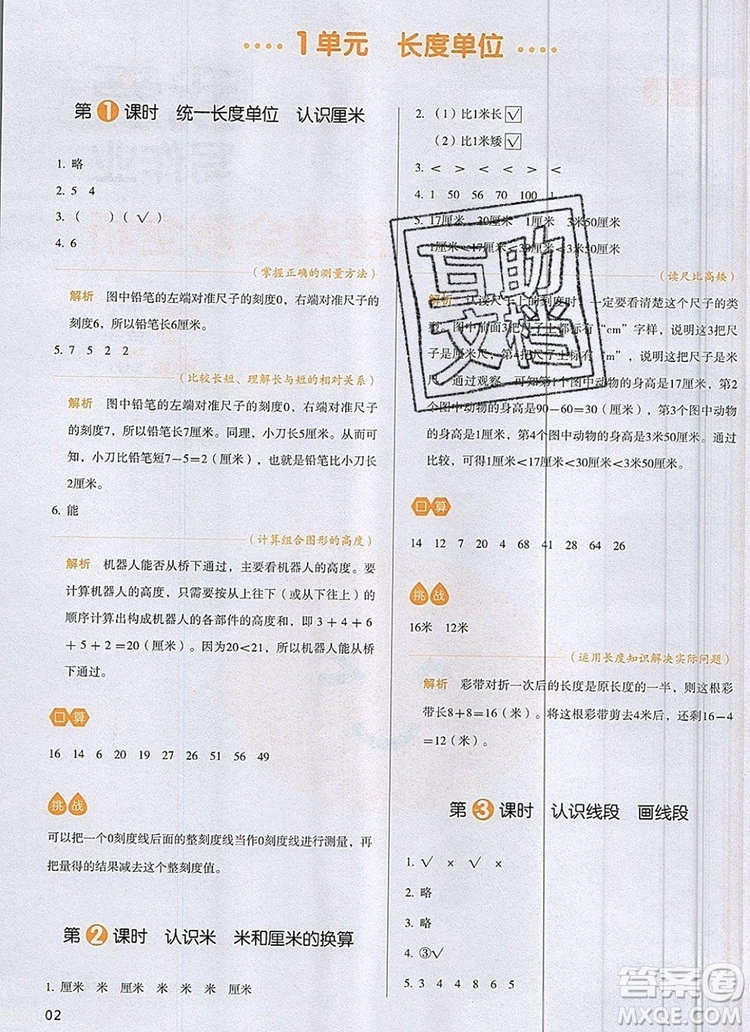 1单元 长度单位
第1课时 统一长度单位 认识厘米
1. 略
2. 5 4
3. ( )(√)
4. 6
(掌握正确的测量方法)
解析 图中铅笔的左端对准尺子的刻度0，右端对准尺子的
刻度6，所以铅笔长6厘米。
5. 7 5 2 2
(比较长短、理解长与短的相对关系)
解析 图中铅笔的左端对准尺子的刻度0，右端对准尺子
的刻度7，所以铅笔长7厘米。同理，小刀长5厘米。
小刀比铅笔短7－5＝2（厘米），也就是铅笔比小刀长
2厘米。
6. 能
(计算组合图形的高度)
解析 机器人能否从桥下通过，主要看机器人的高度。要
计算机器人的高度，只需要按从上往下（或从下往上）
的顺序计算出构成机器人的各部件的高度和，即3＋4＋6
＋5＋2＝20（厘米）。因为20＜21，所以机器人能从桥下
通过。
口算
16 14 6 20 42 20 51 26 56 49
挑战
可以把一个0刻度线后面的整刻度线当作0刻度线进行测量，再
把量得的结果减去这个整刻度值。
第2课时 认识米 米和厘米的换算
1. 厘米 厘米 米 米 米 厘米
02
2. （1）比1米长☑
（2）比1米矮☑
3. ＜ ＜ ＞ ＜ ＜ ＞
4. 1 50 56 70 100
5. 17厘米 30厘米 1厘米 3米50厘米
1厘米＜17厘米＜30厘米＜3米50厘米
(读尺比高矮)
解析 认读尺子上的刻度时，一定要看清楚这个尺子的类
型。图中前面3把尺子上都标有“cm”字样，说明这3把尺
子是厘米尺，最后1把尺子上标有“m”字样，说明这把尺子是
米尺。通过观察，可知第1个图中动物的身高是17厘米，第2
个图中动物的身高是90－60＝30（厘米），第3个图中动物
的身高是1厘米，第4个图中动物的身高是3米50厘米。通过
比较，可得1厘米＜17厘米＜30厘米＜3米50厘米。
口算
14 12 7 20 10 41 28 64 26
挑战
16米 12米
(运用长度知识解决实际问题)
解析 彩带对折一次后的长度是原长度的一半，则这根彩
带长8＋8＝16（米）。将这根彩带剪去4米后，还剩16－4
＝12（米）。
第3课时 认识线段 画线段
1. √ × √ ×
2. 略
3. 略
4. ③√
5. 3 4 4 8 6 5
互助
文档
答案圈
MXQE.COM